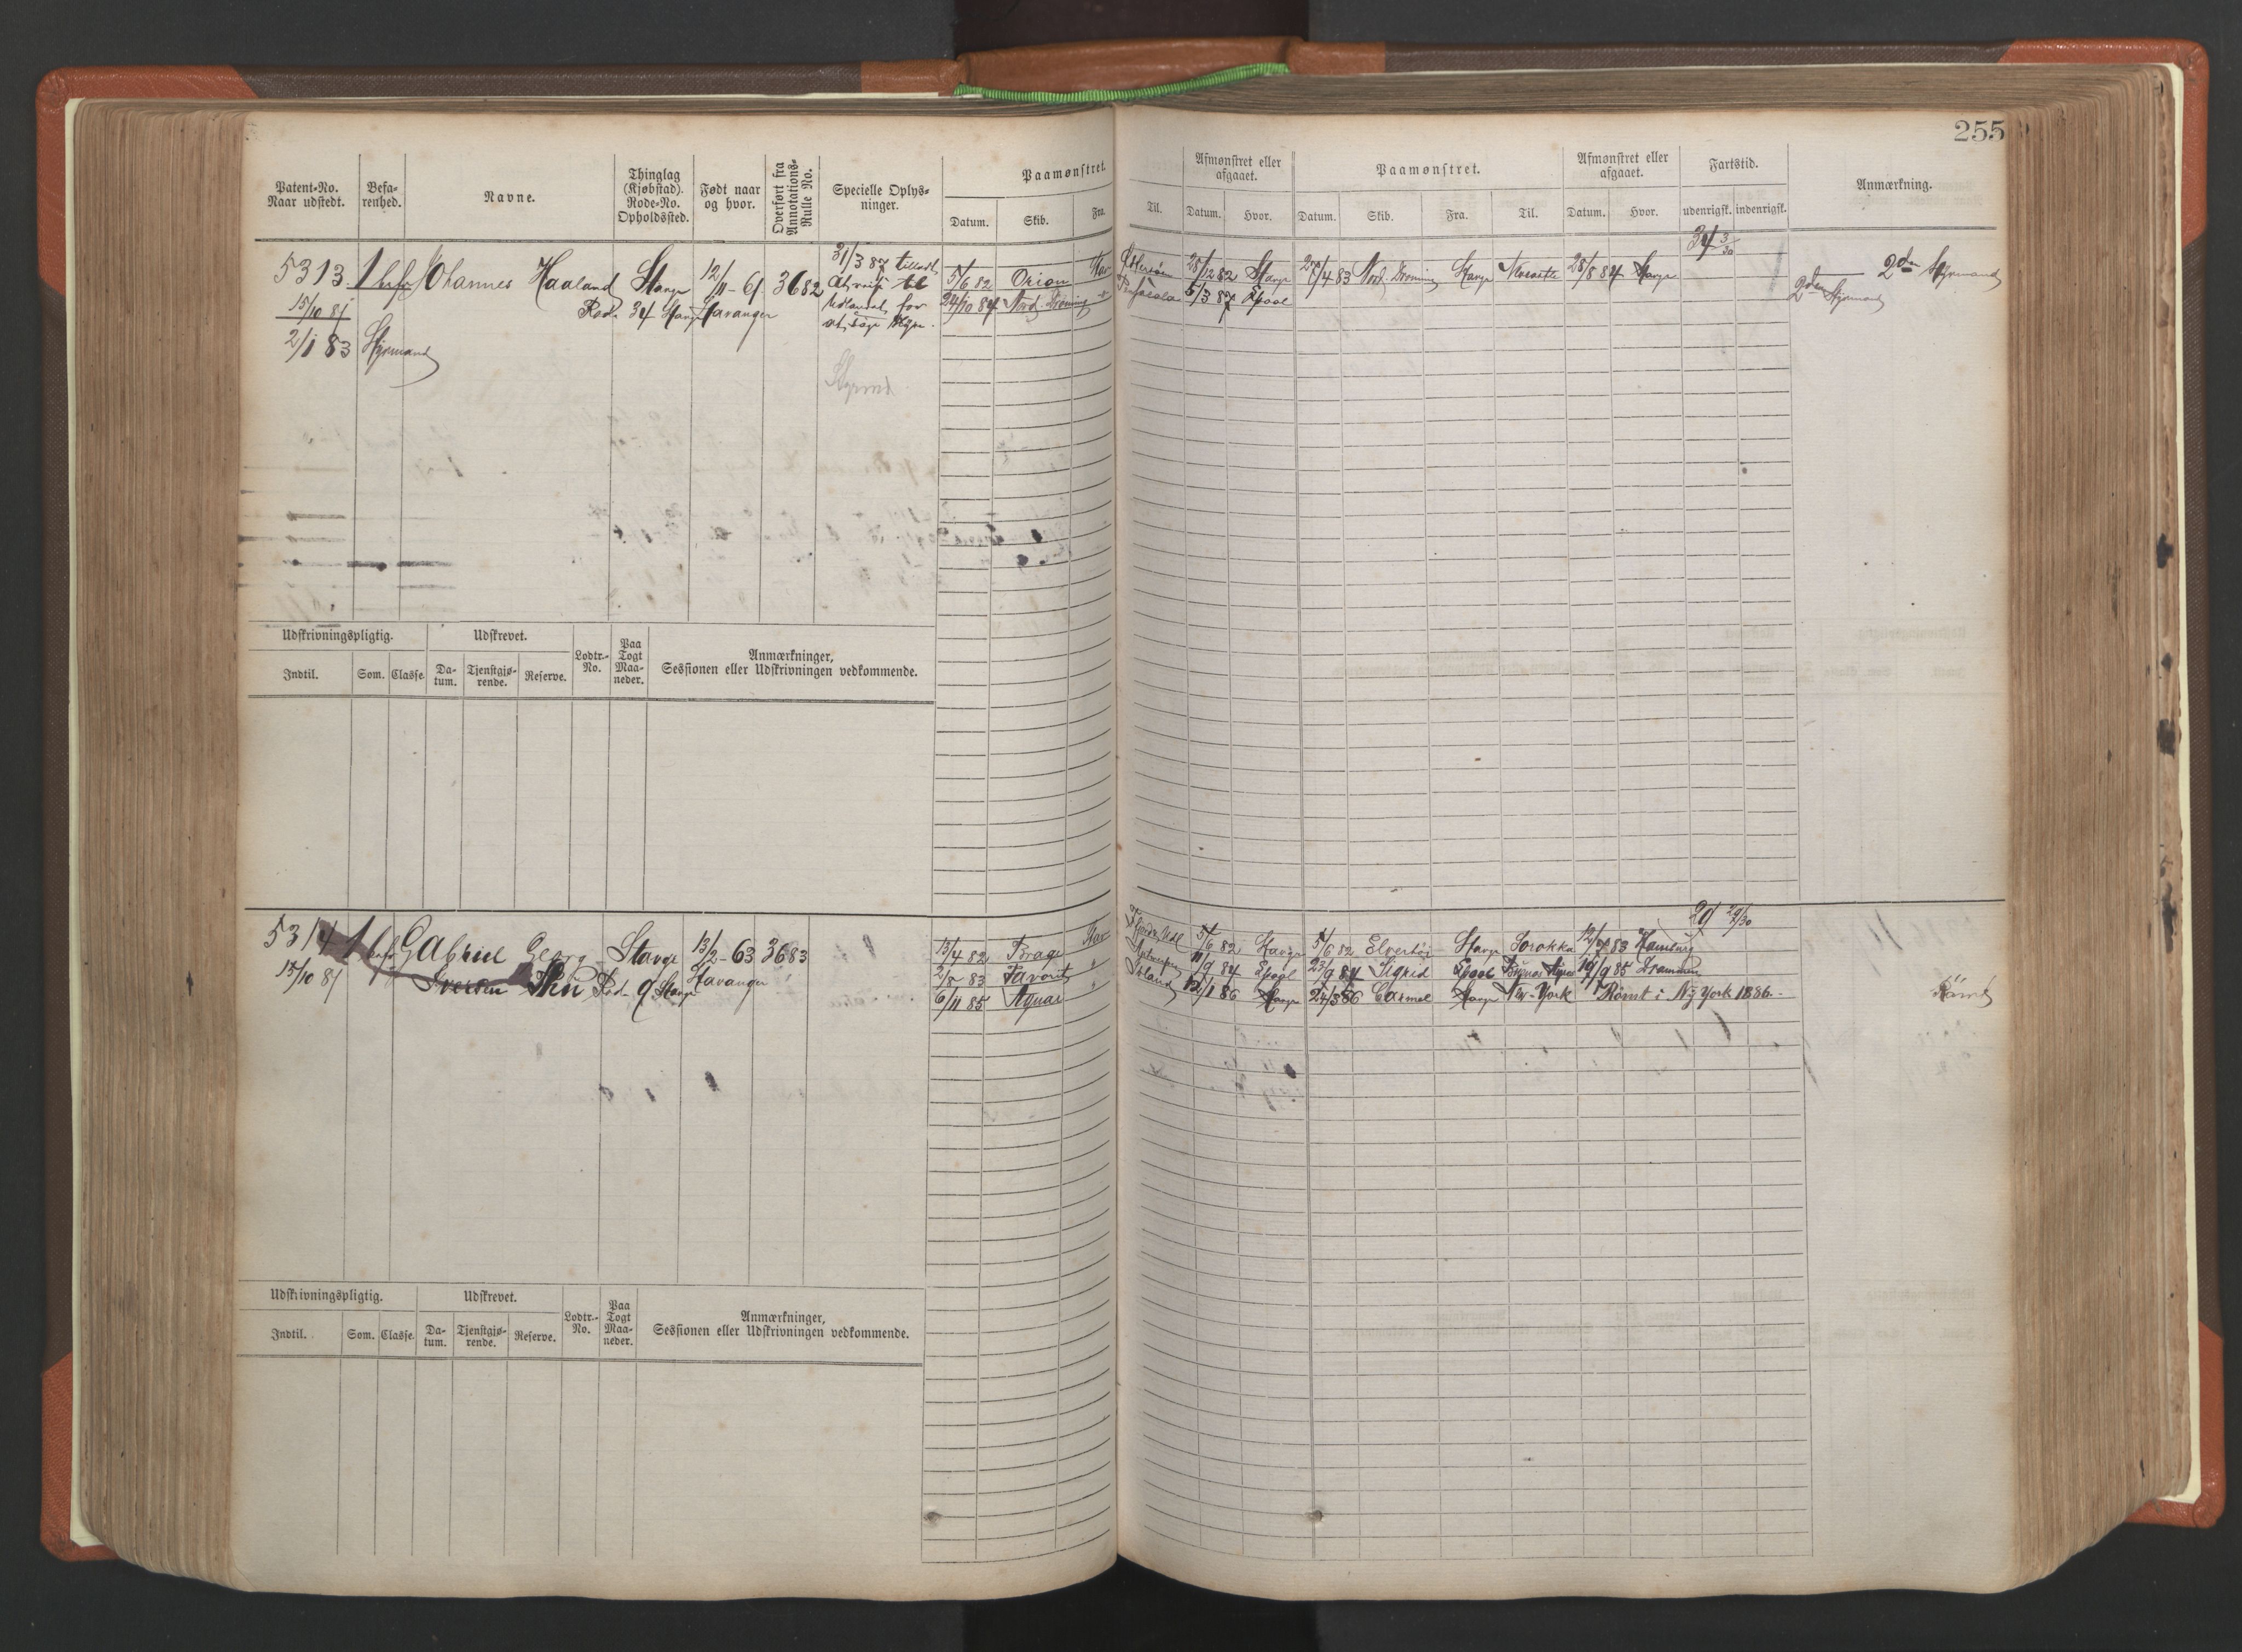 255
Patent-No. Naar udstedt.
Befarenhed.
Navne.
Thinglag (Kjøbstad). Rode-No. Opholdssted.
Født naar og hvor.
Overført fra Annotations-Rulle No.
Specielle Oplysninger.
Paamønstret.
Datum. Skib. Fra. Til.
Afmønstret eller afgaaet.
Datum. Hvor.
Paamønstret.
Datum. Skib. Fra. Til.
Afmønstret eller afgaaet.
Datum. Hvor.
Fartstid.
udenrigsk. indenrigsk.
Anmærkning.
5313 1 Johannes Haaland Stavgr 12/11-61 3682
15/10 81 Rode 34 Stavgr Stavanger
2/1 83 Styrmand
31/3 87 tilladt
at reise til
Udlandet for
at søge Hyre.
Styrmd
5/6 82 Orion Stav 28/12 82 Stavgr 27/4 83 Nord. Dronning Stavgr 28/8 84 Stavgr
24/10 84 Nord. Dronning 5/3 87 Lpool
34 3/30
2den Styrmand
2den Styrmand
Udskrivningspligtig. Udskrevet. Lodtr.-No. Paa Togt Maaneder. Anmærkninger, Sessionen eller Udskrivningen vedkommende.
Indtil. Som. Classe. Datum. Tjenstgjørende. Reserve.
5314 1 Gabriel Georg Stavgr 13/2-63 3683
15/10 81 Iversen Rod- 9 Stavgr Stavanger
29 29/30
13/4 82 Brage Stav 5/6 82 Stavgr 5/6 82 Stavgr Sorokka 12/7 83 Hamburg
2/8 83 Favorit " Antwerpen 11/9 84 Lpool 23/9 84 Sigrid Lpool Buenos Ayres 19/9 85 Drammen
6/11 85 " Island 12/1 86 Stavgr 24/3 86 Carmel Stavgr New-York Rømt i Ny York 1886.
Rømt
Udskrivningspligtig. Udskrevet. Lodtr.-No. Paa Togt Maaneder. Anmærkninger, Sessionen eller Udskrivningen vedkommende.
Indtil. Som. Classe. Datum. Tjenstgjørende. Reserve.